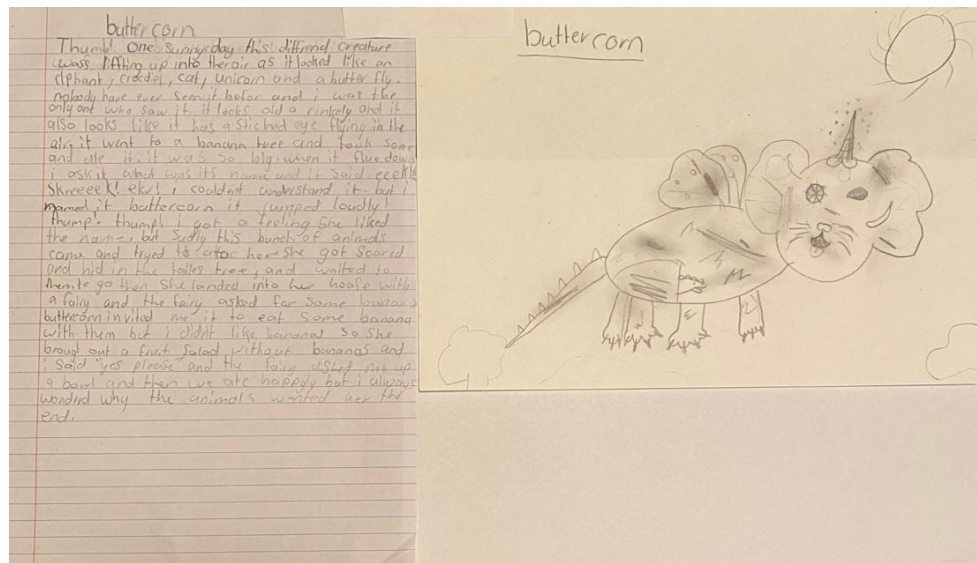 buttercorn
Thump! One sunnyday this diffrend creature
wass liffting up into the air as it looked like an
elphant, crocdiel, cat, unicorn and a butter fly.
nobody have ever seen it befor and i was the
only one who saw it. it looks old a rinkely and it
also looks like it has a stiched eye flying in the
air, it went to a banana tree and took some
and ate it, it was so big. when it flue down
i ask it what was it's name and it said eeekk!
Skreeeek! ekk! i couldent understand it but i
named it buttercorn it jumped loudly!
thump! thump! i got a feeling she liked
the name, but sudly this bunch of animals
came and tryed to atac her she got scared
and hid in the talles tree, and waited to
them to go then she landed into her hoase with
a fairy and the fairy asked for some bananas
buttercorn invited me it to eat some banana
with them but i didnt like bananas so she
broug out a fruit salad without bananas and
i said "yes please" and the fairy me up
a bowl and then we ate happply but i always
wonderd why the animals wanted her the
end.
buttercorn